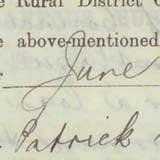 e Rural District C
e above-mentioned
June
Patrick